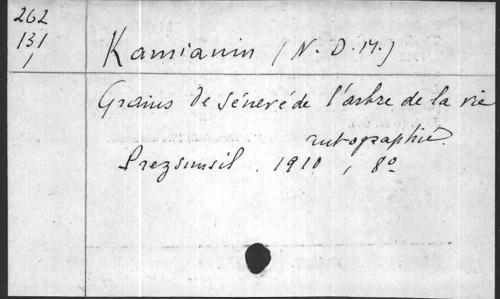 262
131
1
Kamianin (N. D. M.)
Grains de Sénevé de l'arbre de la vie
autographié.
Prezsimsil. 1910, 8º